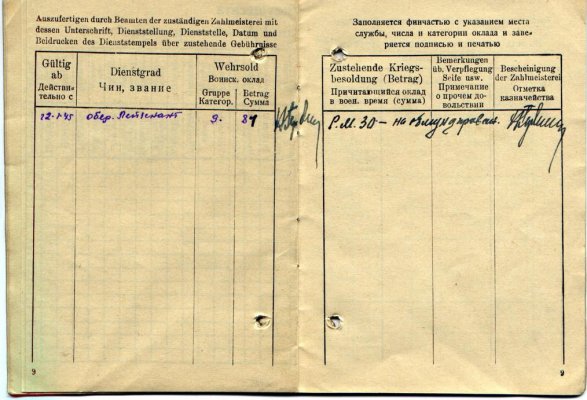 Auszufertigen durch Beamten der zuständigen Zahlmeisterei mit
dessen Unterschrift, Dienststellung, Dienststelle, Datum und
Beidrucken des Dienststempels über zustehende Gebührnisse
Gültig
ab
Действи-
тельно с
Dienstgrad
Чин, звание
Wehrsold
Воинск. оклад
Gruppe
Категор.
Betrag
Сумма
обер. Лейтенант
9.
81
9
Заполняется финчастью с указанием места
службы, числа и категории оклада и заве-
ряется подписью и печатью
Zustehende Kriegs-
besoldung (Betrag)
Причитающийся оклад
в воен. время (сумма)
Bemerkungen
üb. Verpflegung
Seife usw.
Примечание
о прочем до-
вольствии
Bescheinigung
der Zahlmeisterei
Отметка
казначейства
Р.М. 30 — на обмундирован.
9